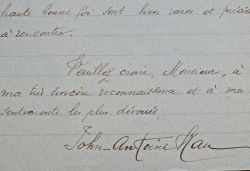 haute bonne foi sont bien rares et
à rencontrer.
Veuillez croire, Monsieur, à
ma très sincère reconnaissance et à mes
sentiments les plus dévoués.
John-Antoine Nau